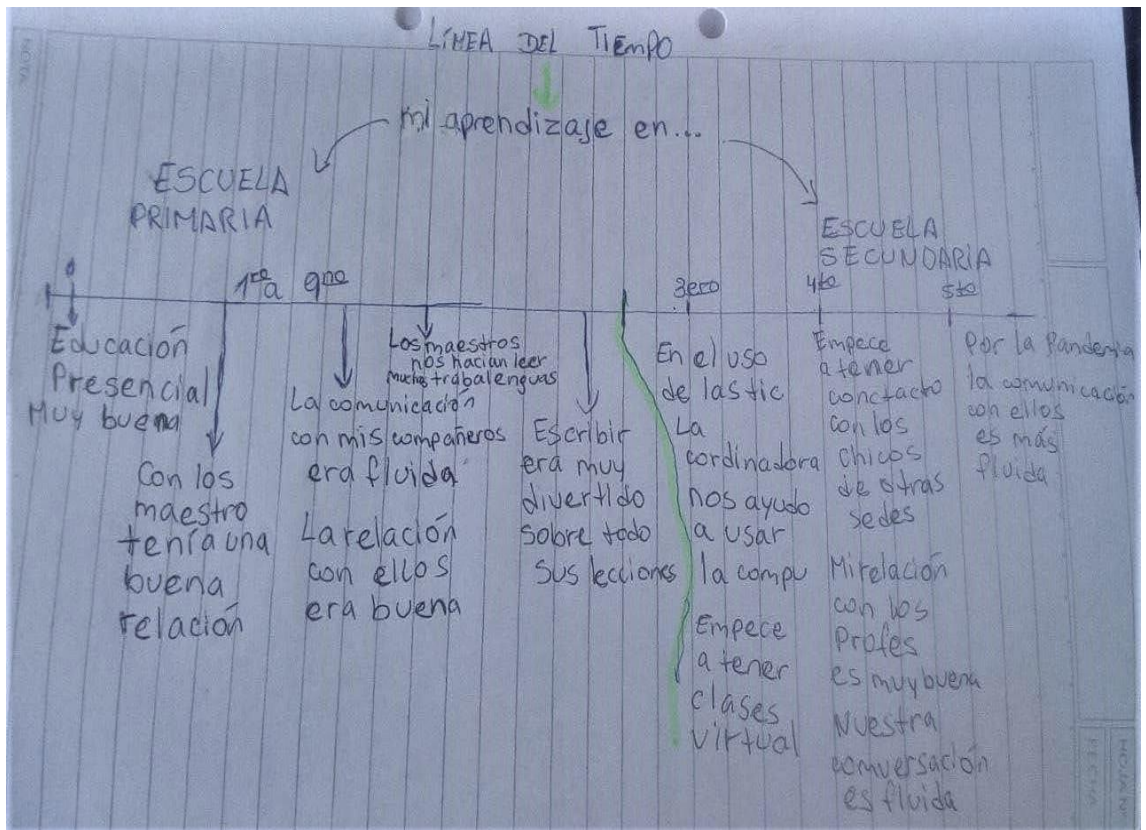 LÍNEA DEL TIEMPO
mi aprendizaje en...
ESCUELA
PRIMARIA
ESCUELA
SECUNDARIA
1ro a 9no
3ero
4to
5to
Educación
Presencial
Muy buena
Con los
maestro
tenía una
buena
relación
La comunicación
con mis compañeros
era fluida
La relación
con ellos
era buena
Los maestros
nos hacian leer
muchas trabalenguas
Escribir
era muy
divertido
sobre todo
sus lecciones
En el uso
de las tic
La
cordinadora
nos ayudo
a usar
la compu
Empece
a tener
clases
virtual
Empece
a tener
conctacto
con los
chicos
de otras
sedes
Mi relación
con los
Profes
es muy buena
Nuestra
comversación
es fluida
Por la Pandemia
la comunicación
con ellos
es más
fluida
NOTA
HOJA N°
FECHA